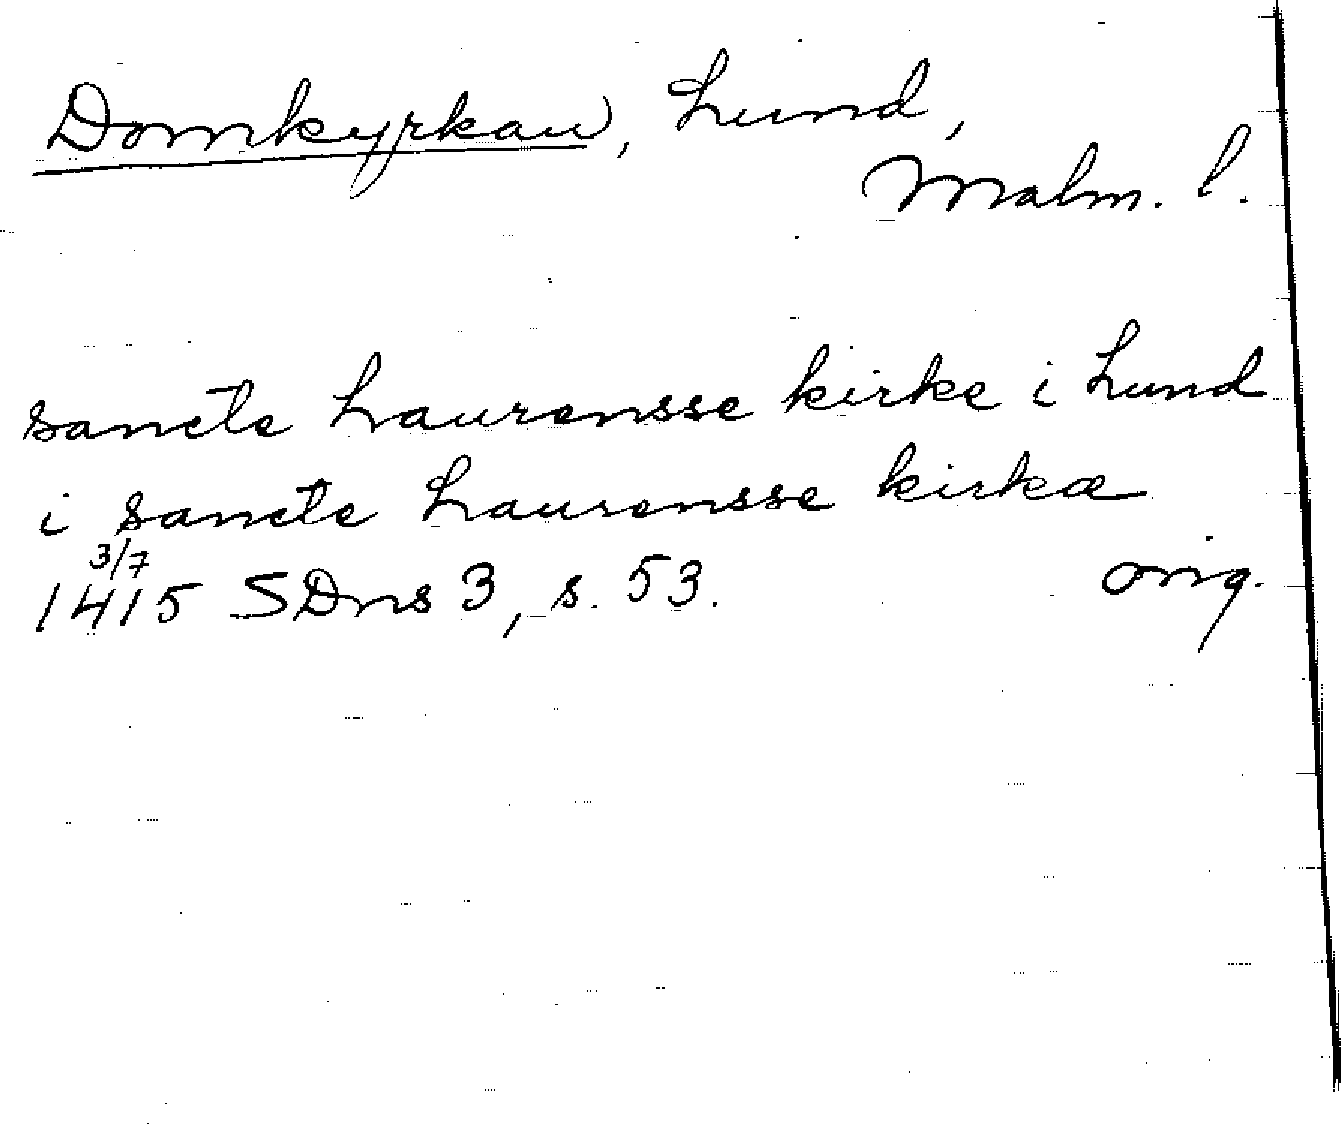 Domkyrkan, Lund,
Malm. l.
sancte Laurensse kirke i Lund
i sancte Laurensse kirkæ
3/7
1415 SDns 3, s. 53. orig.